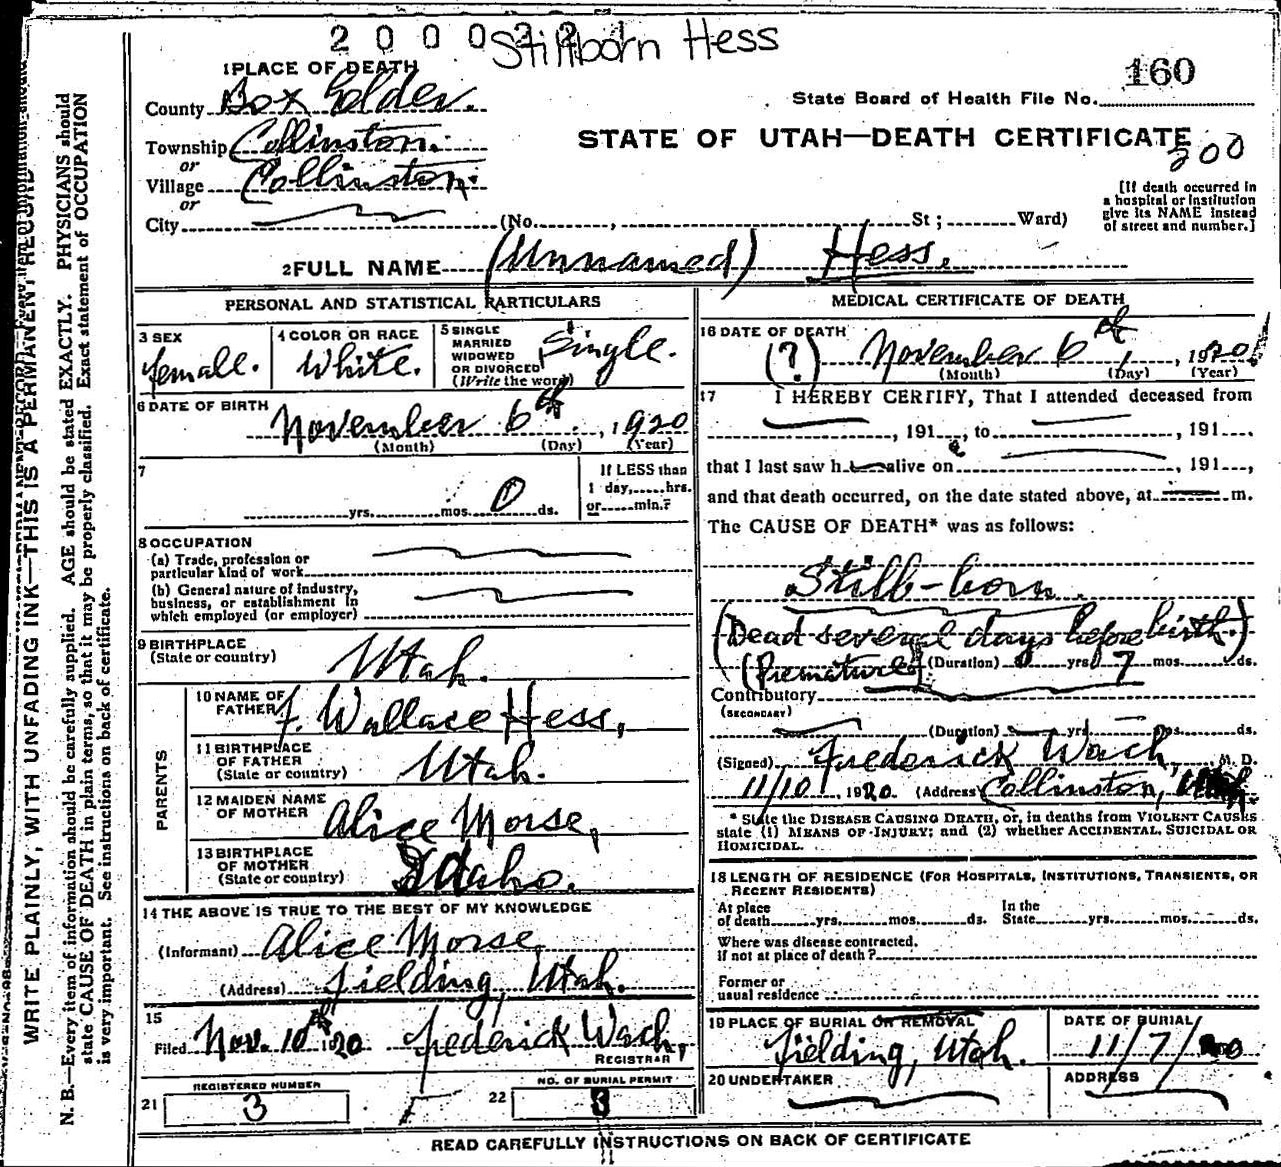 2 0 0 0 2 2 Stillborn Hess
1 PLACE OF DEATH
160
County Box Elder.
State Board of Health File No.
Township Collinston.
STATE OF UTAH—DEATH CERTIFICATE
or
200
Village Collinston.
or
City
(No. , St ; Ward)
[If death occurred in
a hospital or institution
give its NAME instead
of street and number.]
2 FULL NAME (Unnamed) Hess.
PERSONAL AND STATISTICAL PARTICULARS
3 SEX
female.
4 COLOR OR RACE
White.
5 SINGLE
MARRIED
WIDOWED
OR DIVORCED
(Write the word)
Single.
6 DATE OF BIRTH
November 6th, 1920
(Month) (Day) (Year)
7
yrs. mos. 0 ds.
If LESS than
1 day, hrs.
or min.?
8 OCCUPATION
(a) Trade, profession or
particular kind of work
(b) General nature of industry,
business, or establishment in
which employed (or employer)
9 BIRTHPLACE
(State or country)
Utah.
PARENTS
10 NAME OF
FATHER
J. Wallace Hess,
11 BIRTHPLACE
OF FATHER
(State or country)
Utah.
12 MAIDEN NAME
OF MOTHER
Alice Morse,
13 BIRTHPLACE
OF MOTHER
(State or country)
Idaho.
14 THE ABOVE IS TRUE TO THE BEST OF MY KNOWLEDGE
(Informant) Alice Morse
(Address) Fielding, Utah.
15
Filed Nov. 10th 1920 Frederick Wach,
REGISTRAR
REGISTERED NUMBER
21 3
NO. OF BURIAL PERMIT
22 3
MEDICAL CERTIFICATE OF DEATH
16 DATE OF DEATH
(?) November 6th, 1920
(Month) (Day) (Year)
17 I HEREBY CERTIFY, That I attended deceased from
, 191 , to , 191
that I last saw h alive on , 191 ,
and that death occurred, on the date stated above, at m.
The CAUSE OF DEATH* was as follows:
Still-born.
(Dead several days before birth.)
(Premature) (Duration) 0 yrs 7 mos. ds.
Contributory
(SECONDARY)
(Duration) yrs mos. ds.
(Signed) Frederick Wach, M. D.
11/10, 1920. (Address) Collinston, Utah.
* State the DISEASE CAUSING DEATH, or, in deaths from VIOLENT CAUSES
state (1) MEANS OF INJURY; and (2) whether ACCIDENTAL, SUICIDAL OR
HOMICIDAL.
18 LENGTH OF RESIDENCE (FOR HOSPITALS, INSTITUTIONS, TRANSIENTS, OR
RECENT RESIDENTS)
At place
of death yrs. mos. ds.
In the
State yrs. mos. ds.
Where was disease contracted,
if not at place of death?
Former or
usual residence
19 PLACE OF BURIAL OR REMOVAL
Fielding, Utah.
DATE OF BURIAL
11/7/20
20 UNDERTAKER
ADDRESS
READ CAREFULLY INSTRUCTIONS ON BACK OF CERTIFICATE
WRITE PLAINLY, WITH UNFADING INK—THIS IS A PERMANENT RECORD
N. B.—Every item of information should be carefully supplied. AGE should be stated EXACTLY. PHYSICIANS should
state CAUSE OF DEATH in plain terms, so that it may be properly classified. Exact statement of OCCUPATION
is very important. See instructions on back of certificate.